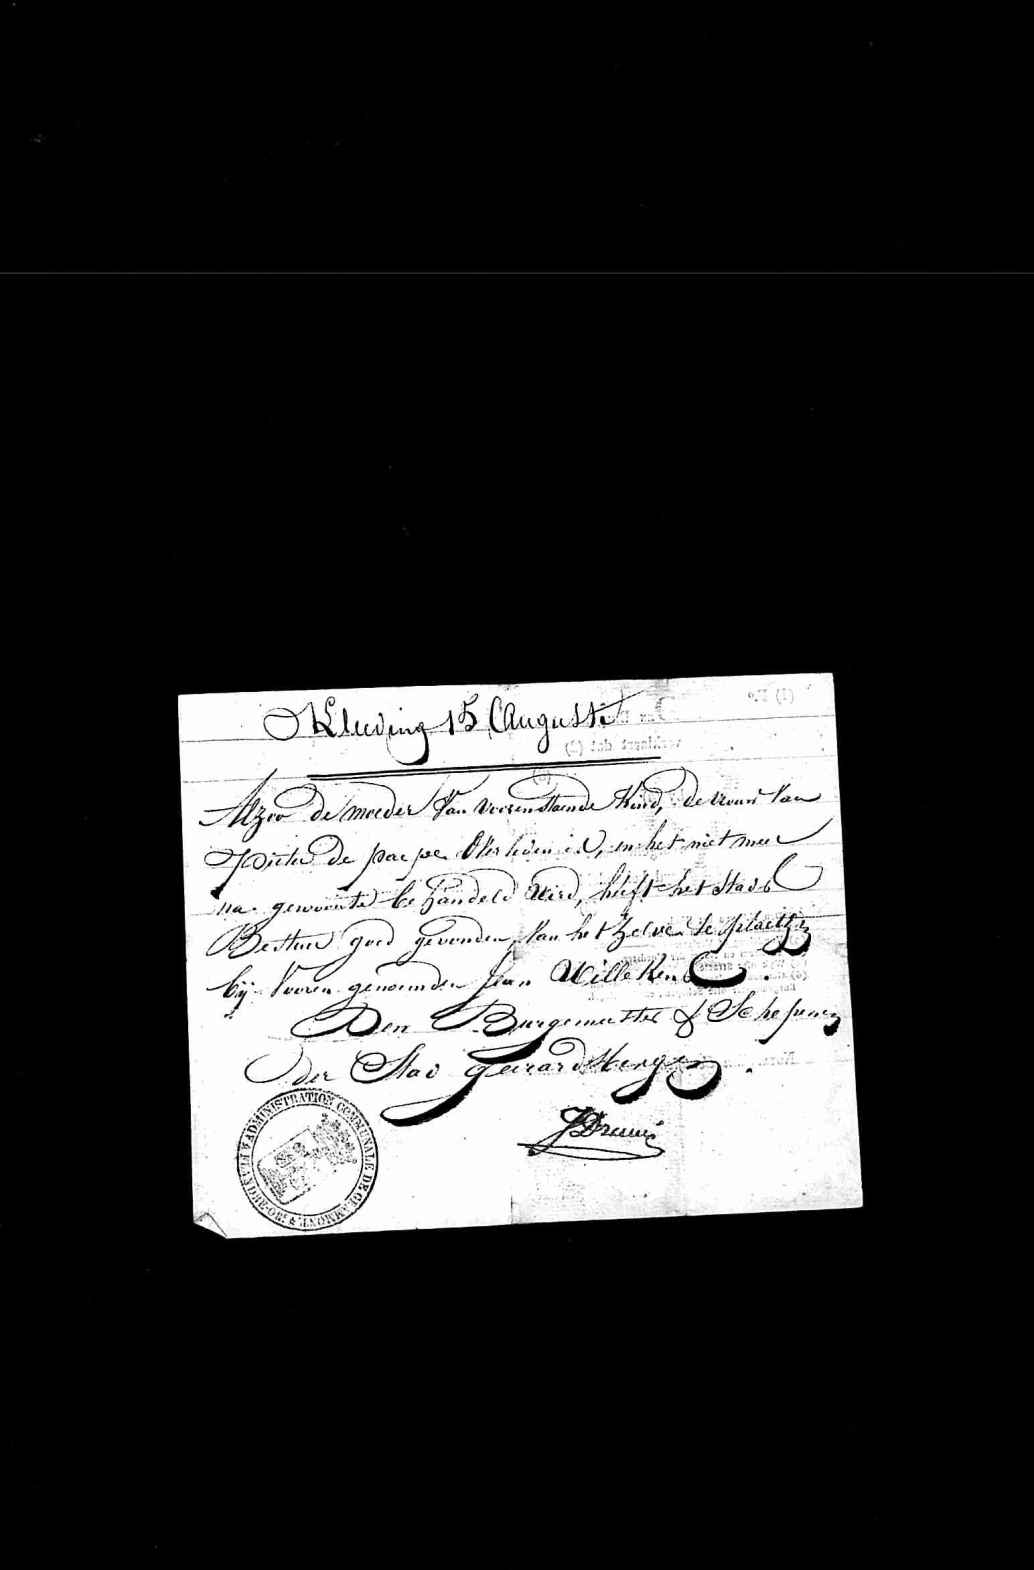 Kleeding 15 Auguste
Alzoo de moeder Van voorenstaende Kind, de vrouw Van
Pieter de paepe Overleden is, en het niet meer
na gewoonte behandeld Wird, heeft het Stads
Bestuur goed gevonden, Van het Zelve te plaetzen
bij Vooren genoemden Jean Willekens.
Den Burgemeester & Schepenen
der Stad Geeraerdsbergen.
ADMINISTRATION COMMUNALE DE GRAMMONT FLANDRE-OR.
(1) N.º
verklaert dat (2)